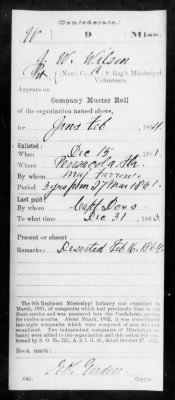 (Confederate.)
W 9 Miss.
J. W. Wilson
Pvt (New) Co. , 9 Reg't Mississippi
Volunteers.
Appears on
Company Muster Roll
of the organization named above,
for Jan & Feb , 1864.
Enlisted:
When Dec 15 , 1861.
Where Pensacola, Fla.
By whom Maj
Period 3 yrs from 27 Mar 1861.
Last paid:
By whom Capt
To what time Dec 31 , 1863.
Present or absent
Remarks: Deserted Feb 16, 1864.
The 9th Regiment Mississippi Infantry was organized in
March, 1861, of companies which had previously been in the
State service and was mustered into the Confederate service
for twelve months. About March, 1862, it was consolidated
into eight companies which were composed of men who had
reenlisted. Two independent companies of Mississippi Infantry
were added to the organization and this action was confirmed
by S. O. No. 251, A. & I. G. O., dated October 27, 1862.
Book mark:
(642) Copyist.